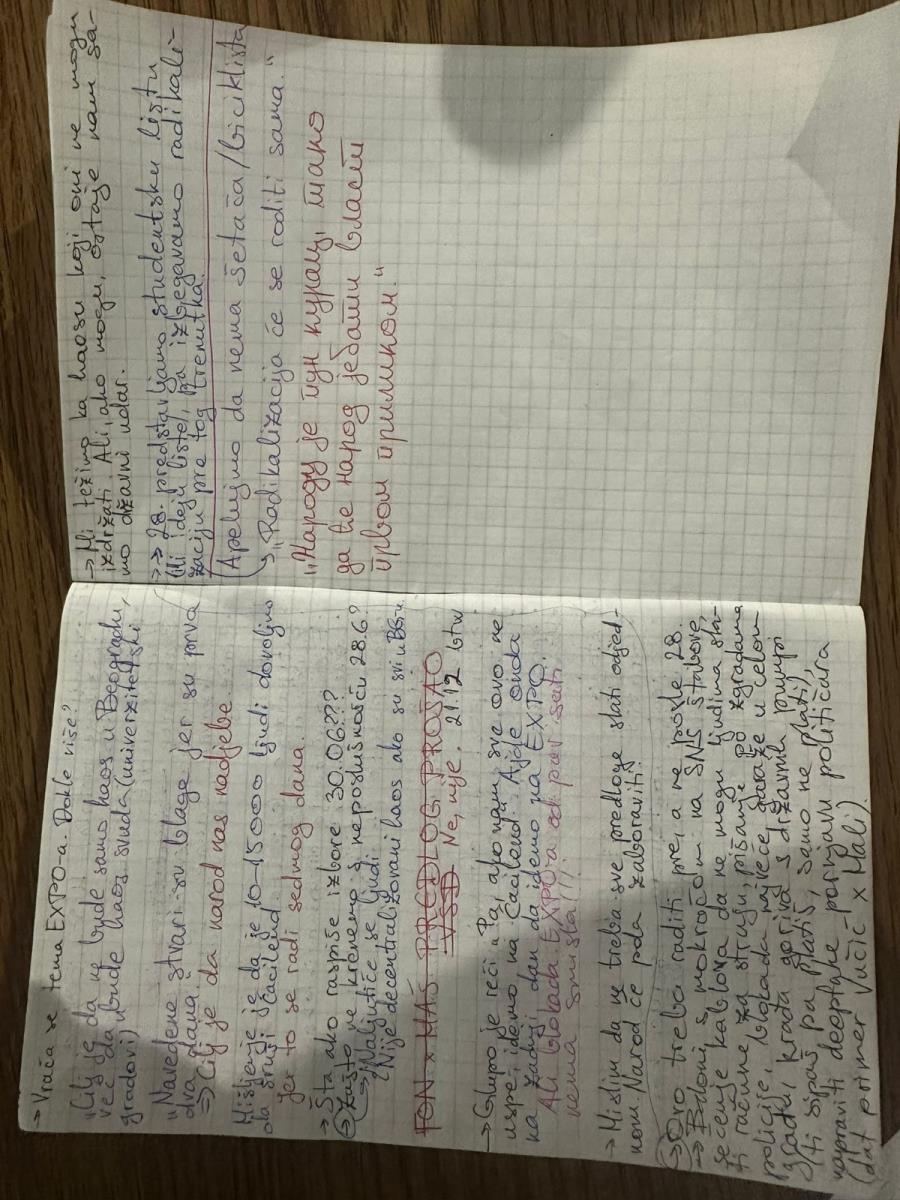 → Vraća se tema EXPO-a. Dokle više?
"Cilj je da ne bude samo haos u Beogradu,
već da bude haos svuda (univerzitetski
gradovi)
"Navedene stvari su blage jer su prva
dva dana."
⇒ Cilj je da narod nas nadjebe.
Mišljenje je da je 10-15000 ljudi dovoljno
da sruši Ćacilend.
jer to se radi sedmog dana.
→ Šta ako raspiše izbore 30.06???
→ Zašto ne krenemo s neposlušnošću 28.6?
⇒ Naljutiće se ljudi
(Nije decentralizovani haos ako su svi u BG-u
FON x MAŠ PREDLOG PROŠAO
VSD Ne, nije. 21:12 btw
→ Glupo je reći "Pa, ako nam sve ovo ne
uspe, idemo na Ćacilend". Ajde onda
na zadnji dan da idemo na EXPO.
Ali blokada EXPO-a od par sati
nema smisla!!!
→ Mislim da ne treba sve predloge slati odjed-
nom. Narod će pola zaboraviti.
→ Ovo treba raditi pre, a ne posle 28.
→ Baloni s mokraćom na SNS štabove,
sečenje kablova da ne mogu ljudima sla-
ti račune za struju, pišanje po zgradama
policije, blokada najveće garaže u celom
gradu, krađa goriva s državnih pumpi
(ti sipaš pa platiš, samo ne plati),
napraviti deepfake pornjavu političara
(dat primer Vučić x Mali).
→ Mi težimo ka haosu koji oni ne mogu
izdržati. Ali, ako mogu, ostaje nam sa-
mo državni udar.
→→ 28. predstavljamo studentsku listu
(ili ideju liste), pa izbegavamo radikali-
zaciju pre tog trenutka.
(Apelujmo da nema šetača/biciklista
↳ "Radikalizacija će se roditi sama."
„Народу је пун курац, тако
да ће народ јебати власт
првом приликом."